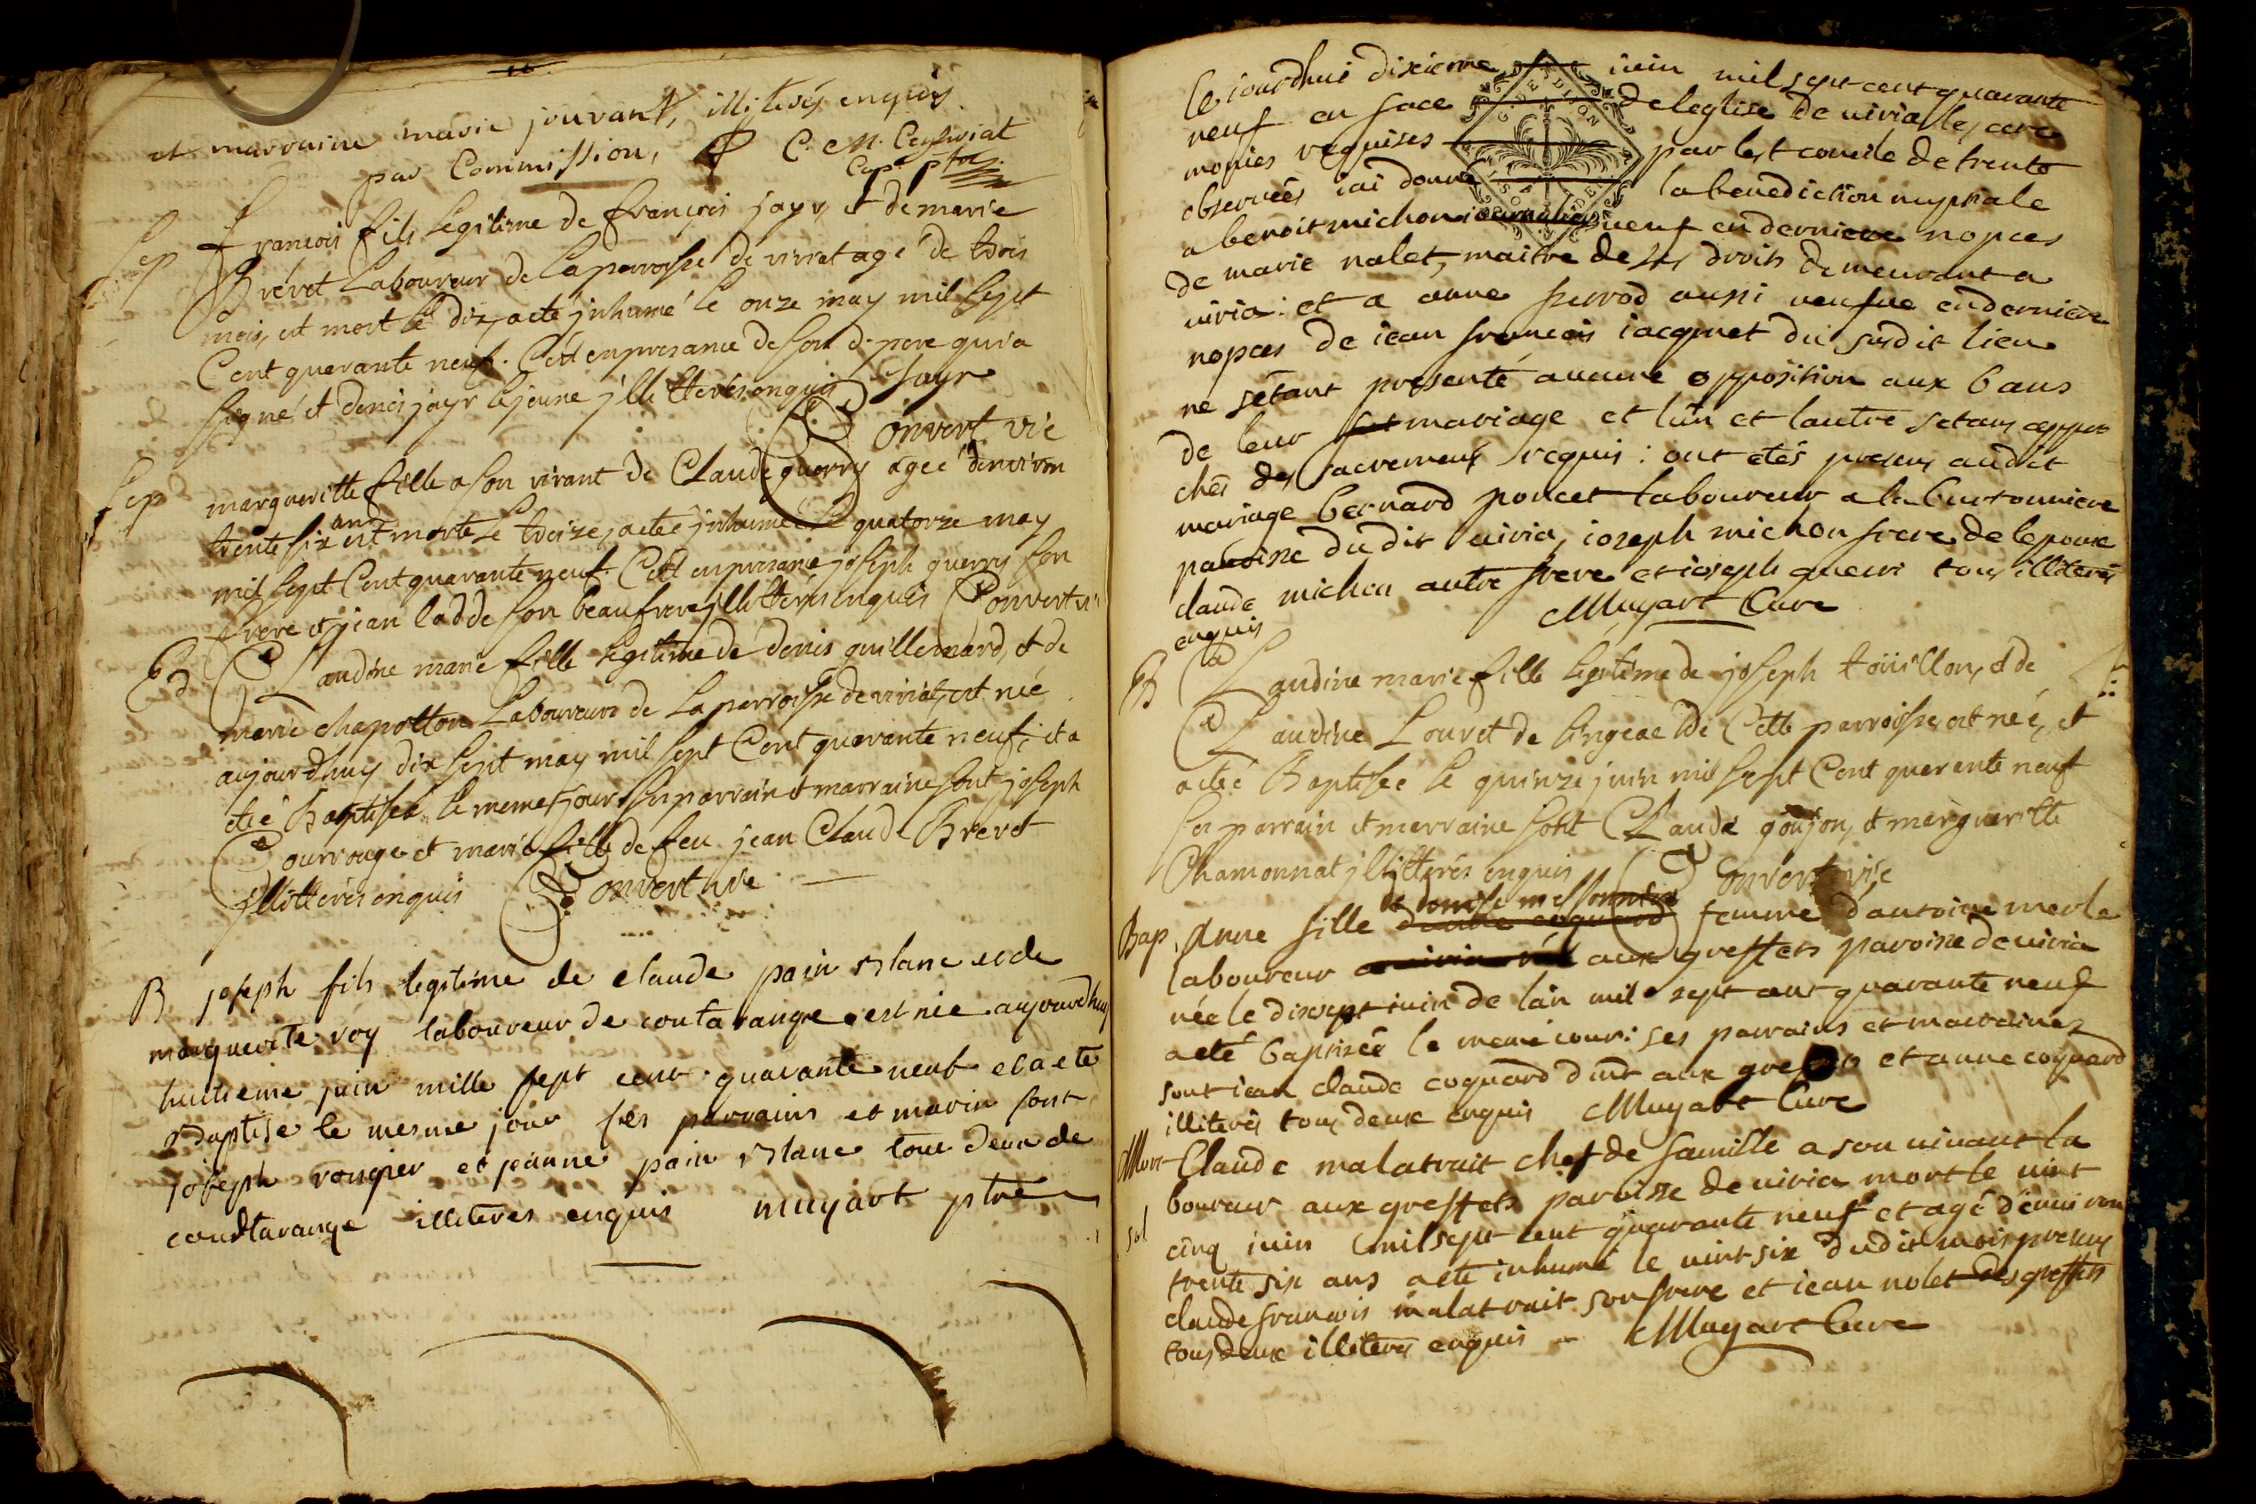 et marraine marie jouvant, illiterés enquis
par Commission, C. M. Ceyseriat
Cap. ptre
Sep françois fils légitime de françois jayr, et de marie
Brévet Laboureur de La parroisse de viriat agé de trois
mois, est mort le dix, a eté jnhumé le onze may mil sept
Cent quarante neuf. C'est en presance de son d. pere qui a
signé et denis jayr le jeune jllitterés enquis Jayr
Convert vic
Sep margueritte fille a son vivant de Claude querry agée d'environ
trente six ans est morte le treize, a eté jnhumée le quatorze may
mil sept Cent quarante neuf. C'est en presance joseph querry son
frere et jean ladde son beaufrere jllitterés enquis Convert vi
B Claudine marie fille legitime de denis quillemard, et de
marie chapotton Laboureurs de La parroisse de viriat, est née
aujourdhuy dix sept may mil sept Cent quarante neuf, et a
eté Baptisée le meme jour. son parrain et marraine sont joseph
Courrouge et marie fille de feu jean Claude Brevet
jllitterés enquis Convert vic
B joseph fils legitime de claude pain Blanc et de
marguerite roy laboureur de coutarange est née aujourdhuy
huitieme juin mille sept cent quarante neuf et a ete
Baptise le mesme jour ses parrains et marin sont
joseph rongier et jeanne pain Blanc tout deux de
coudtarange illiteres enquis muyart ptre
le iourdhui dixieme iuin mil sept cent quarante
neuf en face de leglise de viria les cere
monies requises par le st concile de trente
observées iai donné la benediction nuptiale
a benoit michon iournalier veuf en derniere nopces
de marie nalet, maitre de ses droits demeurant a
viria: et a anne servod aussi veufve en derniere
nopces de iean francois iacquet du susdit lieu
ne sétant presenté aucune opposition aux bans
de leur mariage et lun et lautre setans appro
chés des sacremens requis: ont etés presens audit
mariage bernard poncet laboureur a la bussonniere
paroisse du dit viria, ioseph michon frere de lepoux
claude michon autre frere et ioseph queuri tous illiterés
enquis Muyart Curé
B Claudine marie fille legitime de joseph toüillon, et de
Claudine Louvet de Angeac de Cette parroisse est née, et
a eté Baptisée le quinze juin mil sept Cent quarante neuf
son parrain et marraine sont Claude goujon, et margueritte
Chamonnat jllitterés enquis Convert vic
Bap. Anne fille de denise messonnier femme d'antoine merle
laboureur aux greffets paroisse de viria
née le dixsept iuin de lan mil sept cent quarante neuf
a eté baptisée le meme iour: ses parrains et marraines
sont iean claude coquard dudt aux greffets et anne coquard
illiterés tous deux enquis Muyart Curé
Mort Claude malatrait chef de famille a son vivant la
boureur aux greffets paroisse de viria mort le vint
sol cinq iuin mil sept cent quarante neuf et agé d'environ
trente six ans a eté inhumé le vint six dudit mois presens
claude francois malatrait son frere et iean nolet des greffets
tous deux illiterés enquis Muyart Curé